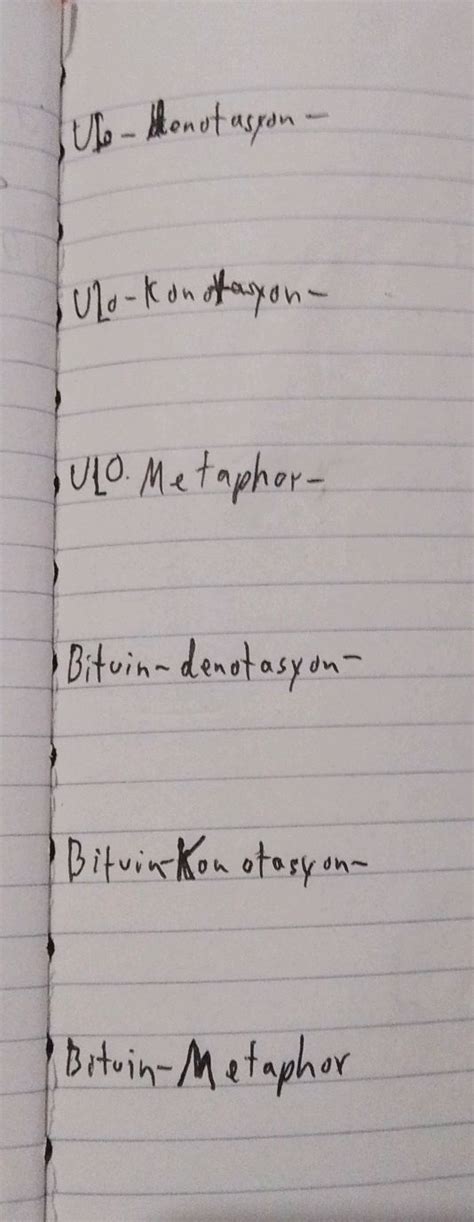 Ulo - denotasyon -
Ulo - Konotasyon -
ULO. Metaphor -
Bituin - denotasyon -
Bituin - Konotasyon -
Bituin - Metaphor